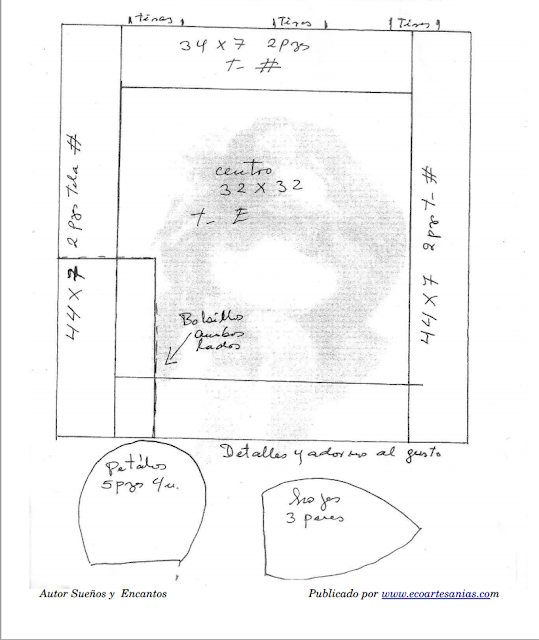 Tiras Tiras Tiras
34 X 7 2 Pzs
T- #
centro
32 X 32
T- E
44 X 7 2 Pzs Tela #
44 X 7 2 pzs T- #
Bolsillo
ambos
lados
Detalles y adorno al gusto
Petálos
5 pzs c/u.
hojas
3 pares
Autor Sueños y Encantos
Publicado por www.ecoartesanias.com